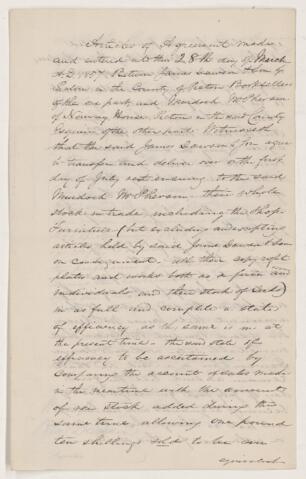 Articles of Agreement made
and entered into this 28th day of March
A.D. 1857 Between James Dawson & Son of
Pictou in the County of Pictou Booksellers
of the one part and Murdoch McPherson
of Norway House Pictou in the said County
Esquire of the other part Witnesseth
that the said James Dawson & Son agree
to transfer and deliver over on the first
day of July next ensuing to the said
Murdoch McPherson their whole
stock in trade including the Shop
Furniture (but excluding and excepting
articles held by said James Dawson & Son
on consignment all their copy right
plates and works both as a firm and
individuals and their stock of Seeds)
in as full and complete a state
of efficiency as the same is in at
the present time the said state of
efficiency to be ascertained by
comparing the account of sales made
in the meantime with the amount
of new stock added during the
same time, allowing one pound
ten shillings sold to be
equivalent